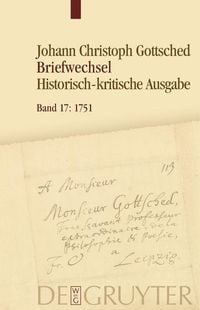 Johann Christoph Gottsched
Briefwechsel
Historisch-kritische Ausgabe
Band 17: 1751
113
A Monsieur
Monsieur Gottsched,
Tres-savant professeur
extraordinaire de la
Philosophie & Poesie,
Fr. C a Leipzig
W
DE
G
DE GRUYTER